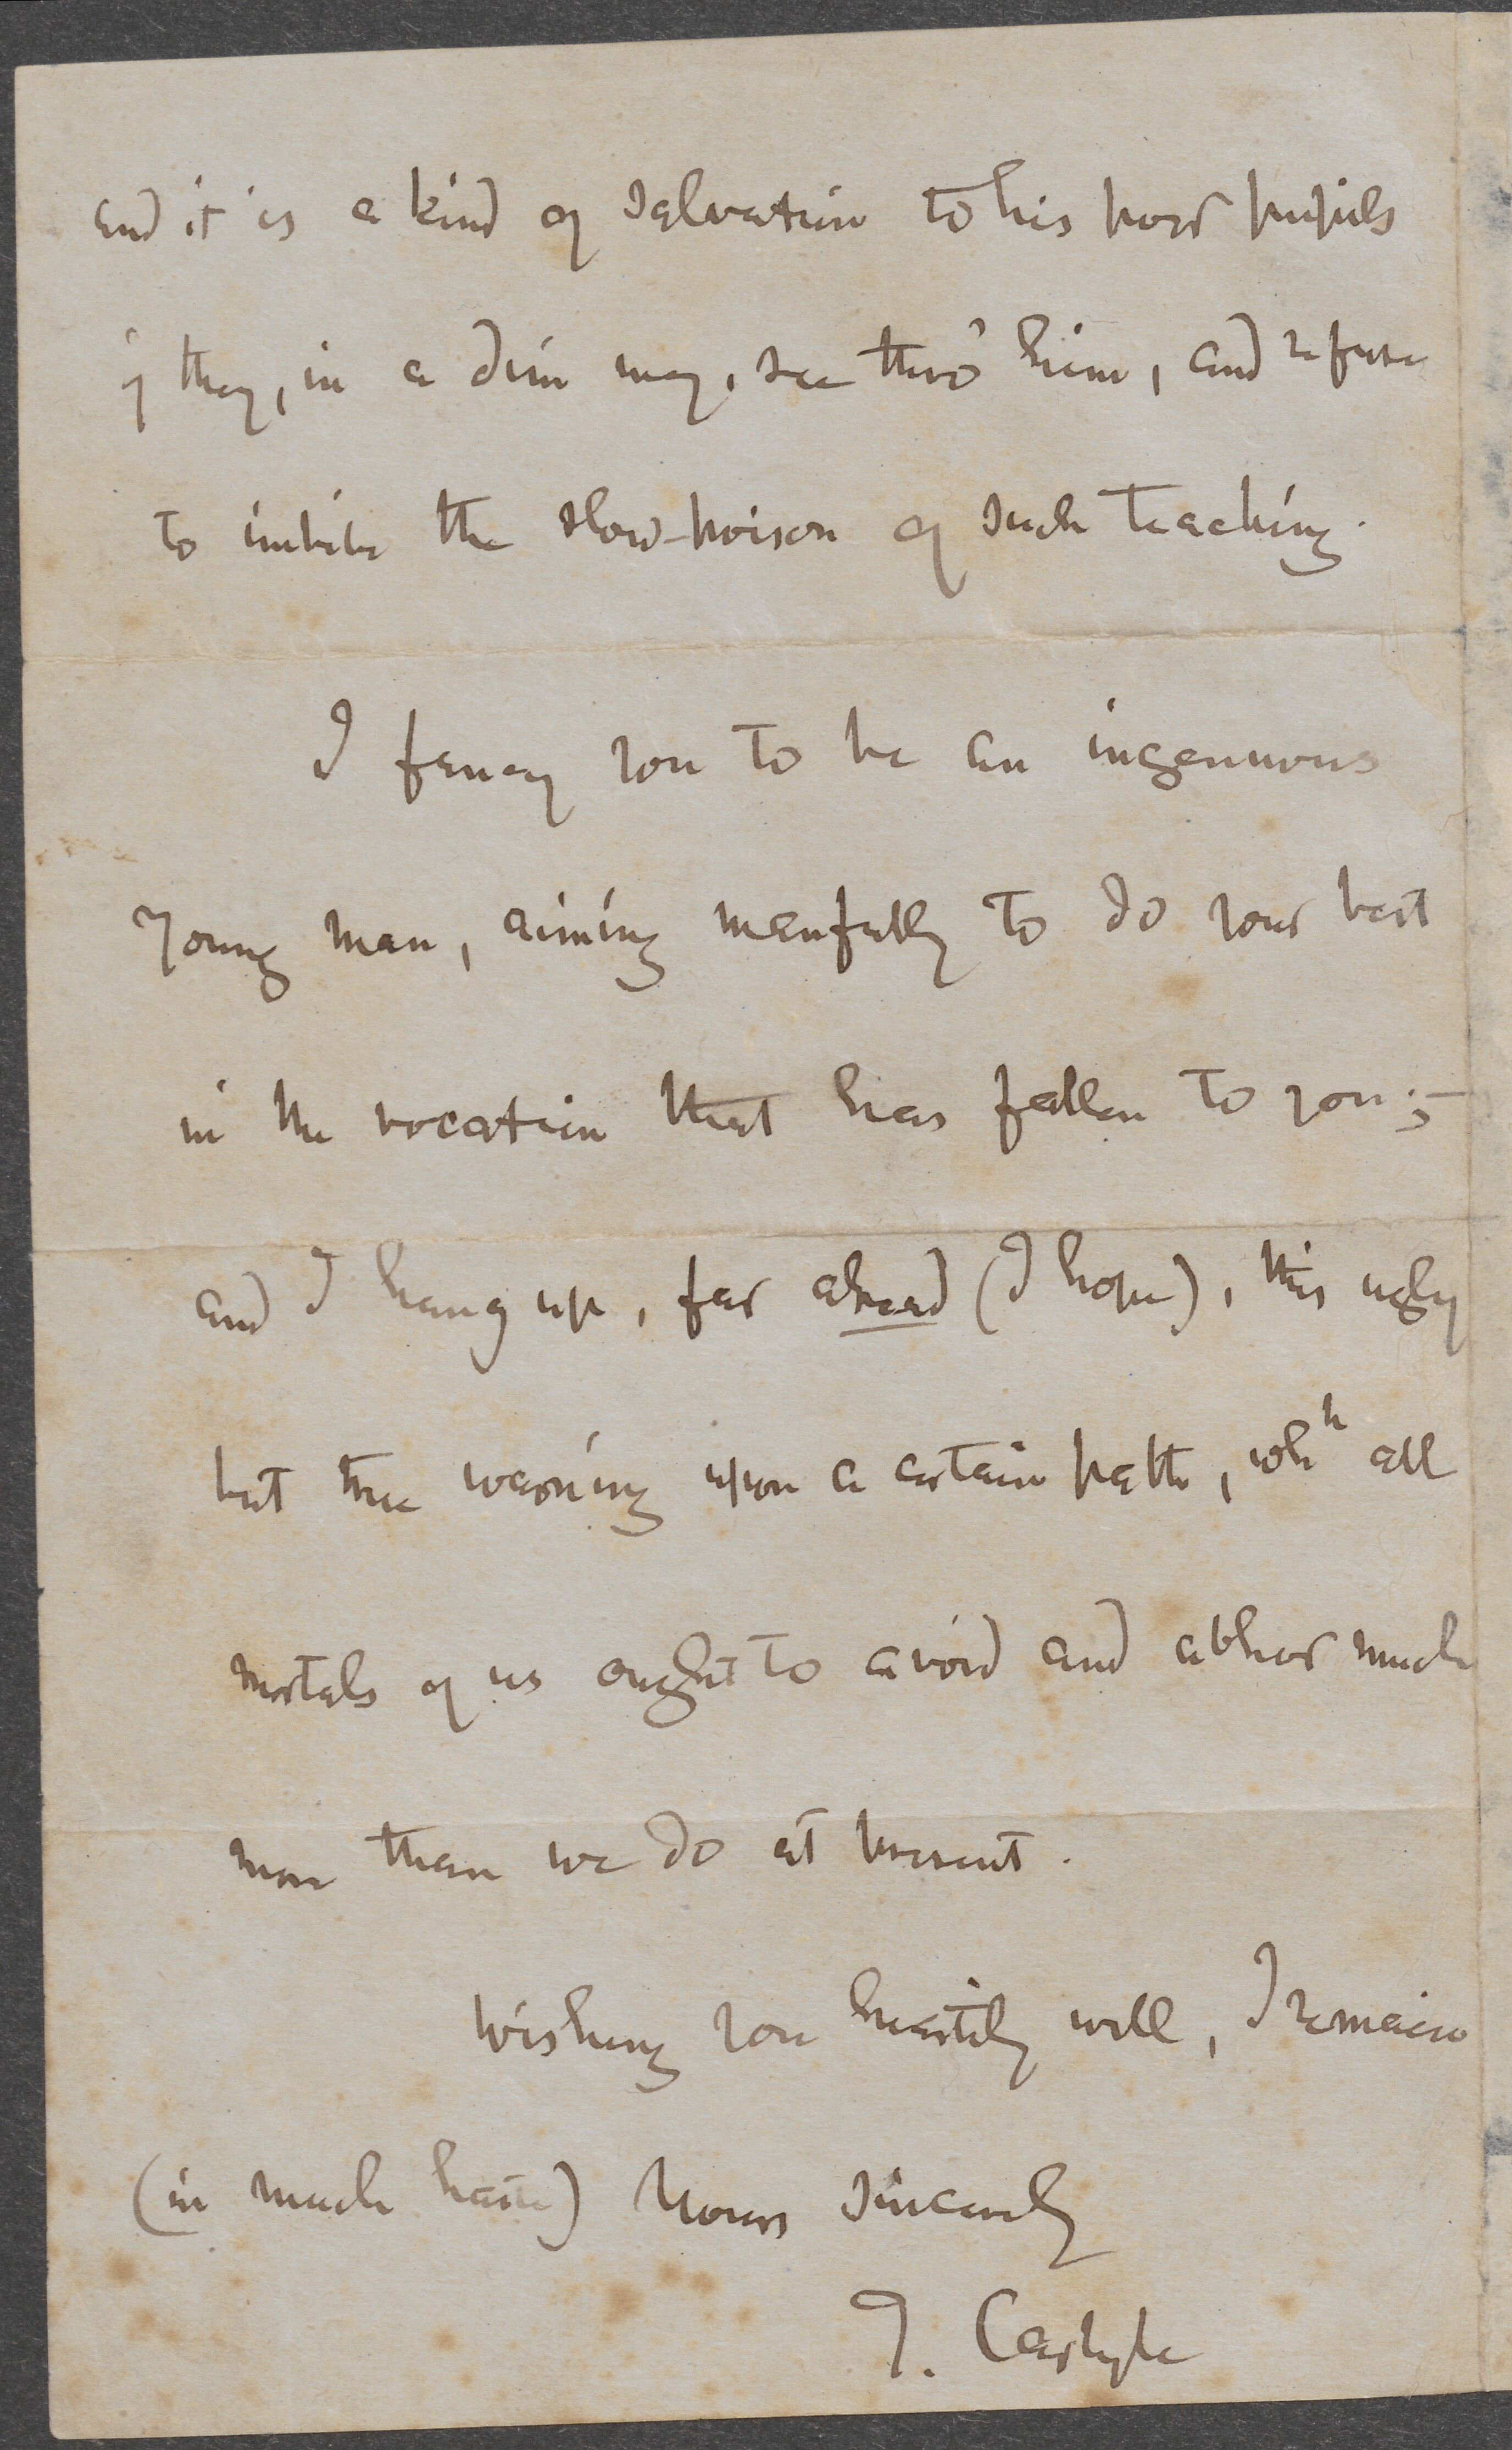 and it is a kind of salvation to his poor pupils
if they, in a dim way, see thro' him, and refuse
to imbibe the slow-poison of such teaching.
I fancy you to be an ingenuous
young man, aiming manfully to do your best
in the vocation that has fallen to you;—
and I hang up, far ahead (I hope), this ugly
but true warning upon a certain path, whh all
mortals of us ought to avoid and abhor much
more than we do at present.
Wishing you heartily well, I remain
(in much haste) Yours sincerely
T. Carlyle